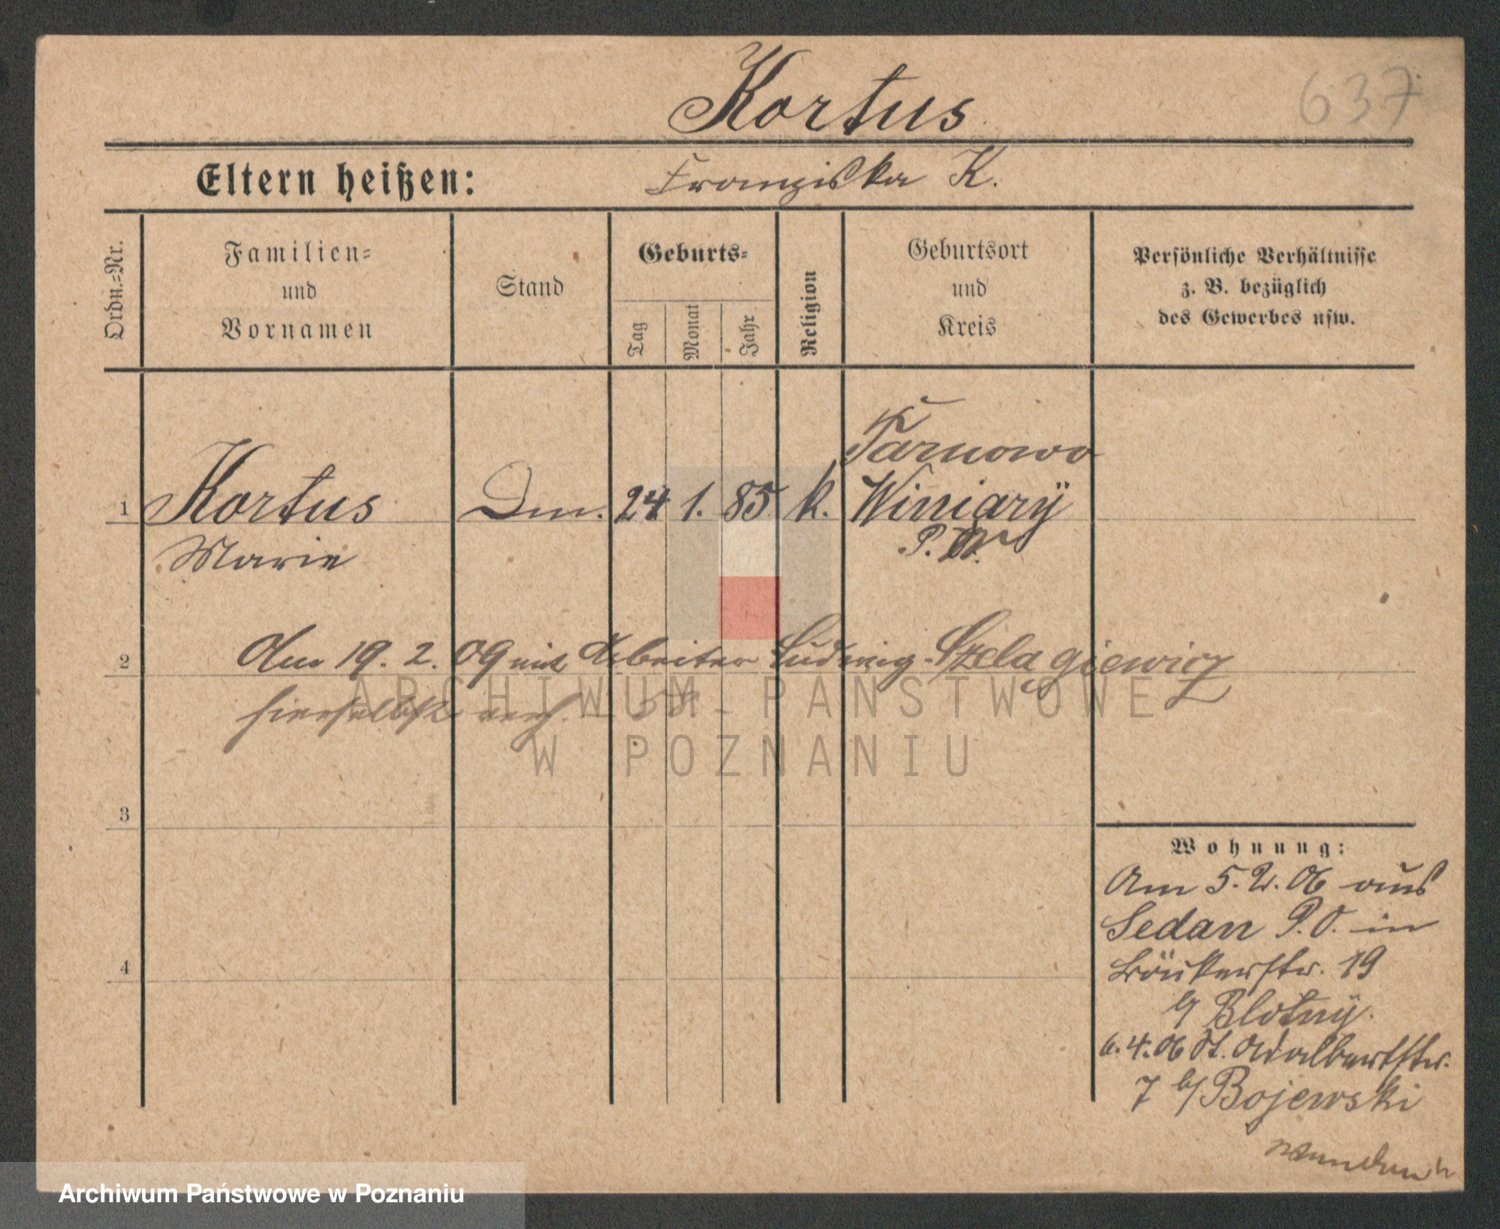 Kortus
637
Eltern heißen: Franziska K.
Ordn.=Nr.
Familien=
und
Vornamen
Stand
Geburts=
Tag
Monat
Jahr
Religion
Geburtsort
und
Kreis
Persönliche Verhältnisse
z. B. bezüglich
des Gewerbes usw.
Tarnowo
1 Kortus 24 1. 85 k. Winiary
Marie P. W.
2 Am 19. 2. 09 mit Arbeiter Ludwig Szelągiewicz
hierselbst verh.
ARCHIWUM PAŃSTWOWE
W POZNANIU
3
4
Wohnung:
Am 5. 2. 06 aus
Sedan P. O. in
Bäckerstr. 19
b/ Blotny.
6. 4. 06 St. Adalbertstr.
7 b/ Bojewski
Archiwum Państwowe w Poznaniu